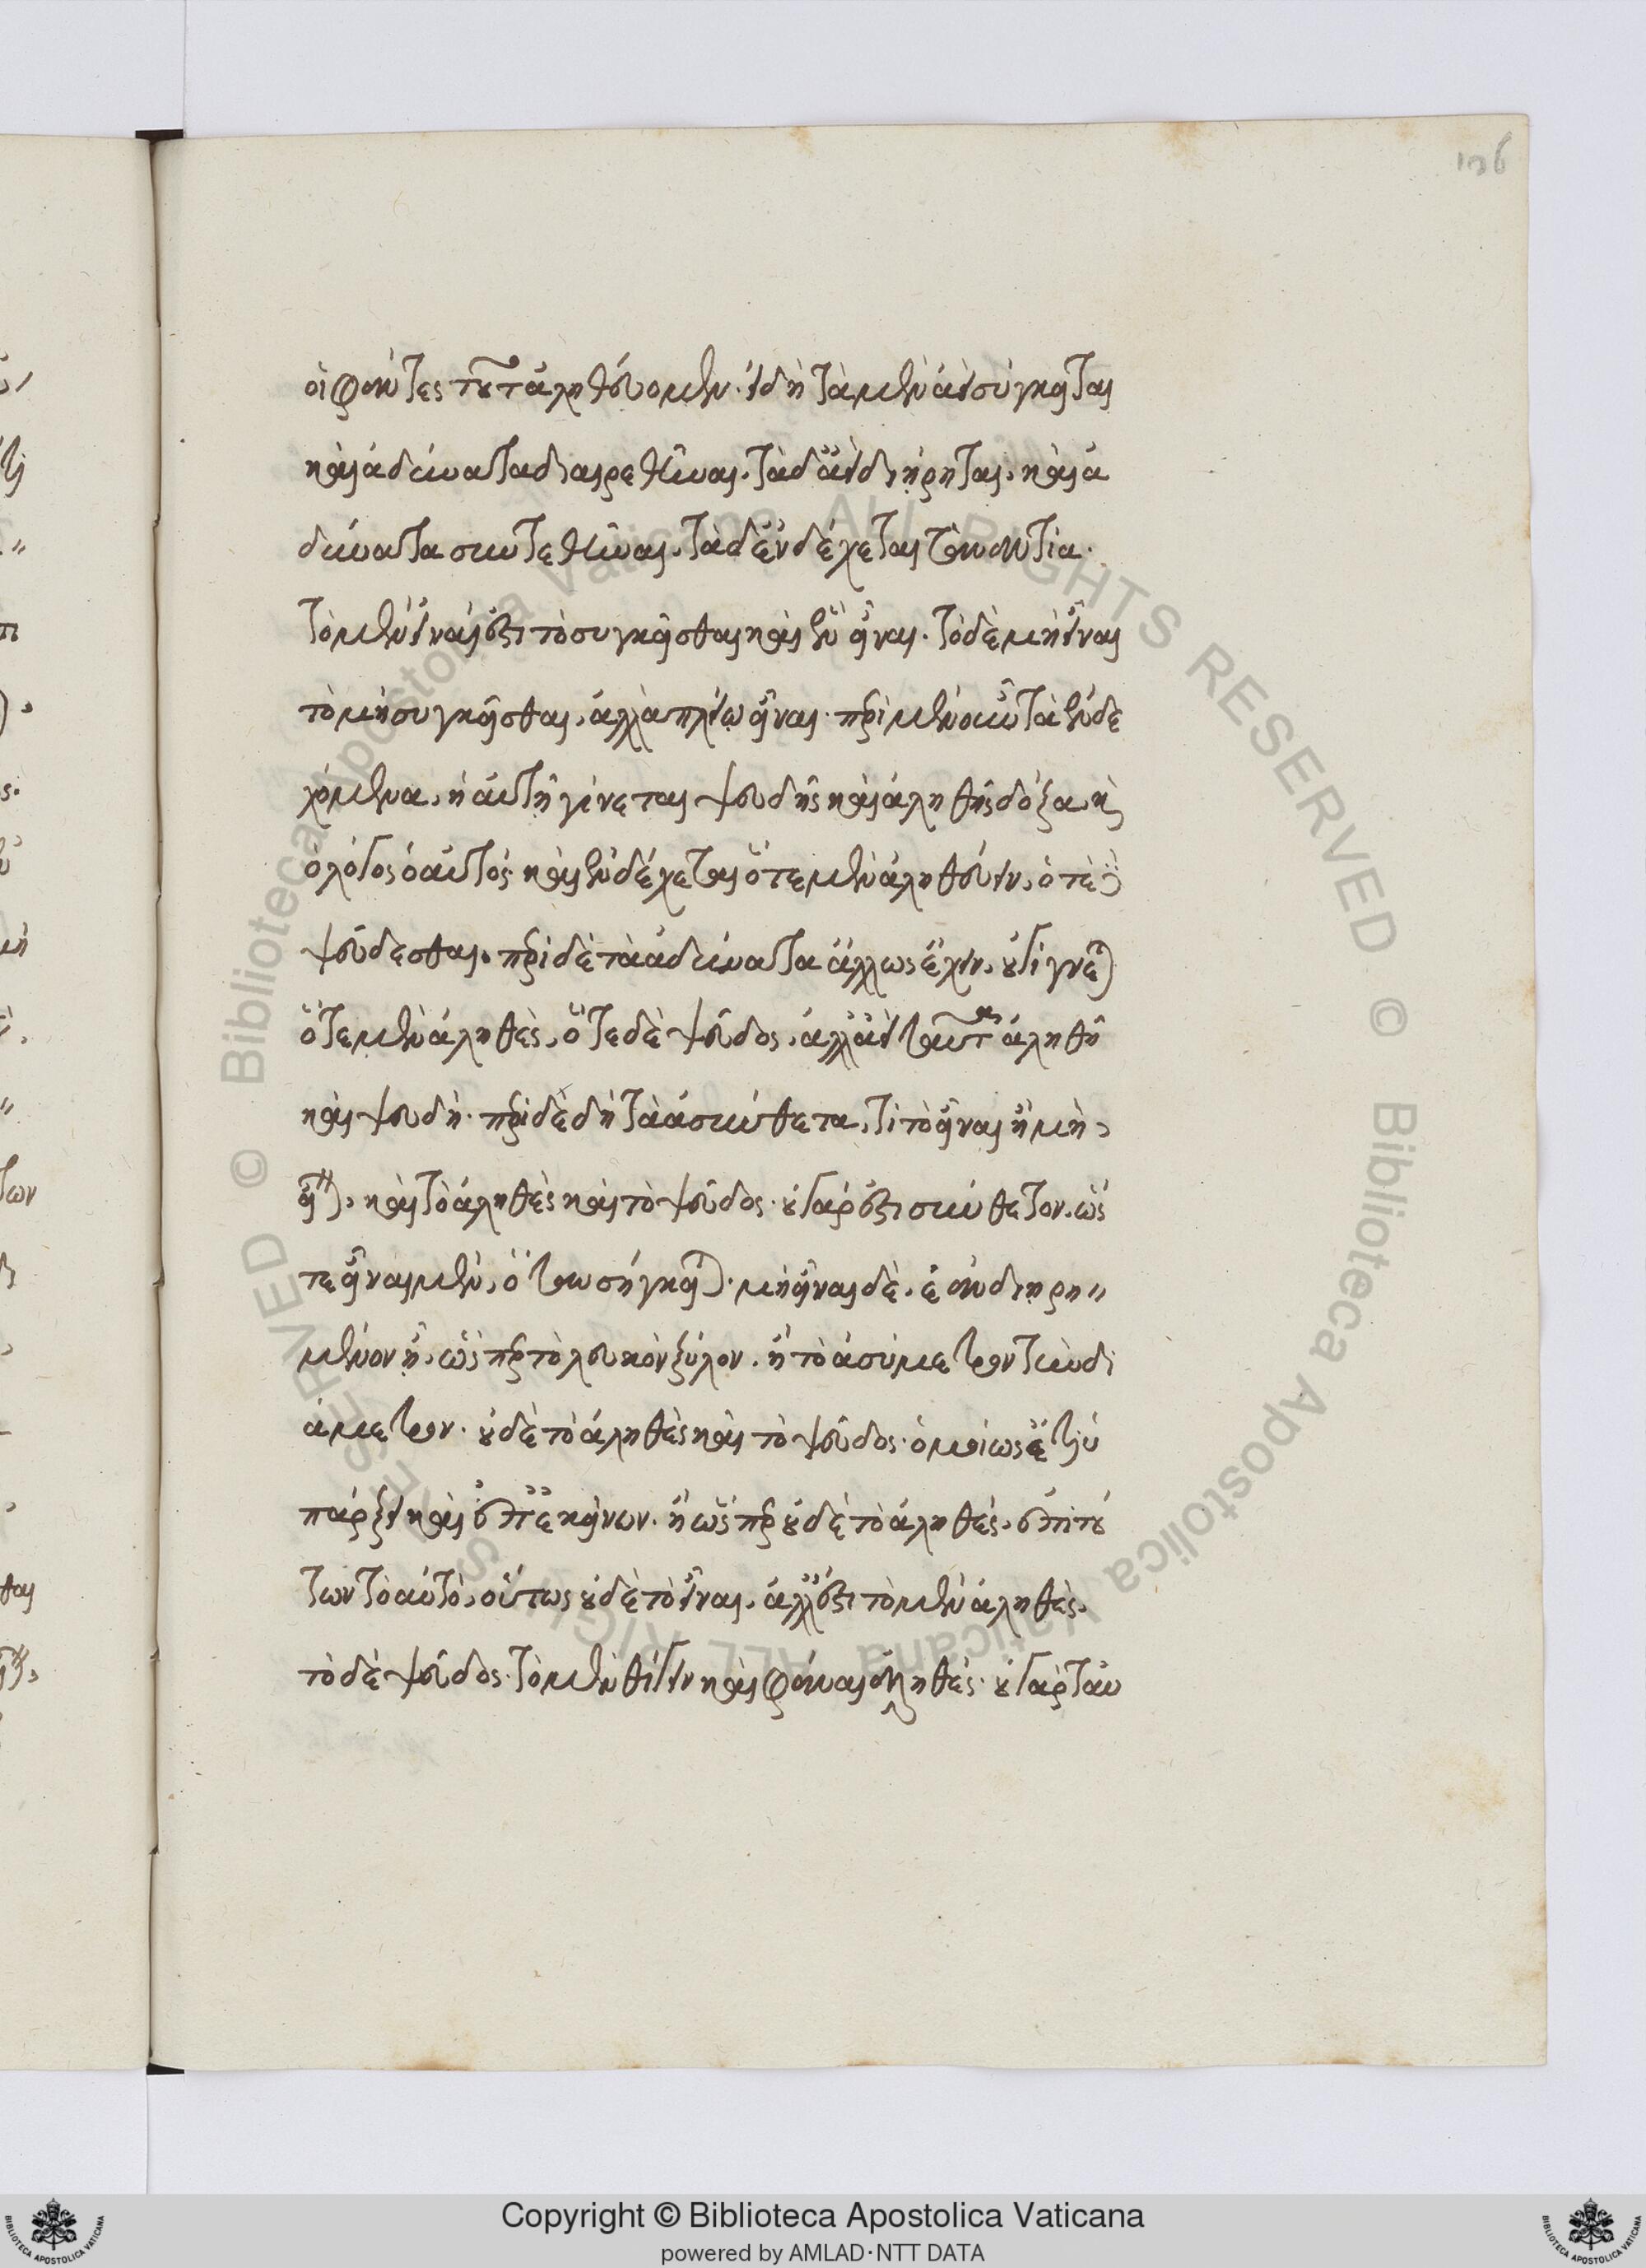 136
οἱ φάντες τοῦτ' ἀληθεύομεν· εἰ δὴ τὰ μὲν ἀεὶ σύγκειται
καὶ ἀδύνατα διαιρεθῆναι, τὰ δ' ἀεὶ διῄρηται, καὶ ἀ
δύνατα συντεθῆναι, τὰ δ' ἐνδέχεται τἀναντία·
τὸ μὲν εἶναί ἐστι τὸ συγκεῖσθαι καὶ ἓν εἶναι· τὸ δὲ μὴ εἶναι
τὸ μὴ συγκεῖσθαι, ἀλλὰ πλείω εἶναι· περὶ μὲν οὖν τὰ ἐνδε
χόμενα, ἡ αὐτὴ γίνεται ψευδὴς καὶ ἀληθὴς δόξα, κ
ὁ λόγος ὁ αὐτός· καὶ ἐνδέχεται ὁτὲ μὲν ἀληθεύειν, ὁτὲ δὲ
ψεύδεσθαι· περὶ δὲ τὰ ἀδύνατα ἄλλως ἔχειν, οὐ γίγνεται
ὅτε μὲν ἀληθὲς, ὅτε δὲ ψεῦδος, ἀλλ' ἀεὶ ταῦτα ἀληθῆ
καὶ ψευδῆ· περὶ δὲ δὴ τὰ ἀσύνθετα, τί τὸ εἶναι ἢ μὴ
εἶναι, καὶ τὸ ἀληθὲς καὶ τὸ ψεῦδος· οὐ γάρ ἐστι σύνθετον, ὥς
τε εἶναι μὲν, ὅταν σύγκειται· μὴ εἶναι δὲ, ἐὰν διῃρη
μένον ᾖ, ὥσπερ τὸ λευκὸν ξύλον, ἢ τὸ ἀσύμετρον τὴν δι
άμετρον· οὐδὲ τὸ ἀληθὲς καὶ τὸ ψεῦδος ὁμοίως ἔτι ὑ
πάρξει καὶ ἐπ' ἐκείνων· ἢ ὥσπερ οὐδὲ τὸ ἀληθές, ἐπὶ τού
των τὸ αὐτὸ, οὕτως οὐδὲ τὸ εἶναι, ἀλλ' ἔστι τὸ μὲν ἀληθὲς,
τὸ δὲ ψεῦδος· τὸ μὲν θιγεῖν καὶ φάναι ἀληθές· οὐ γὰρ ταὐ
Copyright © Biblioteca Apostolica Vaticana
powered by AMLAD·NTT DATA